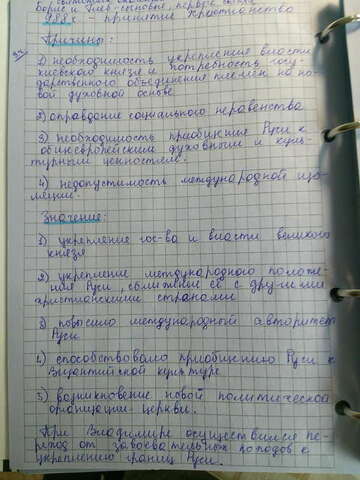 Борис и Глеб - основные, первые святые
988г. - принятие Христианства
Причины:
1) необходимость укрепления власти
киевского князя и потребность госу-
дарственного объединения племен на но-
вой духовной основе
2) оправдание социального неравенства
3) необходимость приобщения Руси к
общеевропейским духовным и куль-
турным ценностям.
4) недопустимость международной изо-
ляции.
Значение:
1) укрепление гос-ва и власти великого
князя
2) укрепление международного положе-
ния Руси, сближение её с другими
христианскими странами
3) повысило международный авторитет
Руси
4) способствовало приобщению Руси к
Византийской культуре
5) возникновение новой политической
организации - церкви.
При Владимире осуществился пе-
реход от завоевательных походов к
укреплению границ Руси.